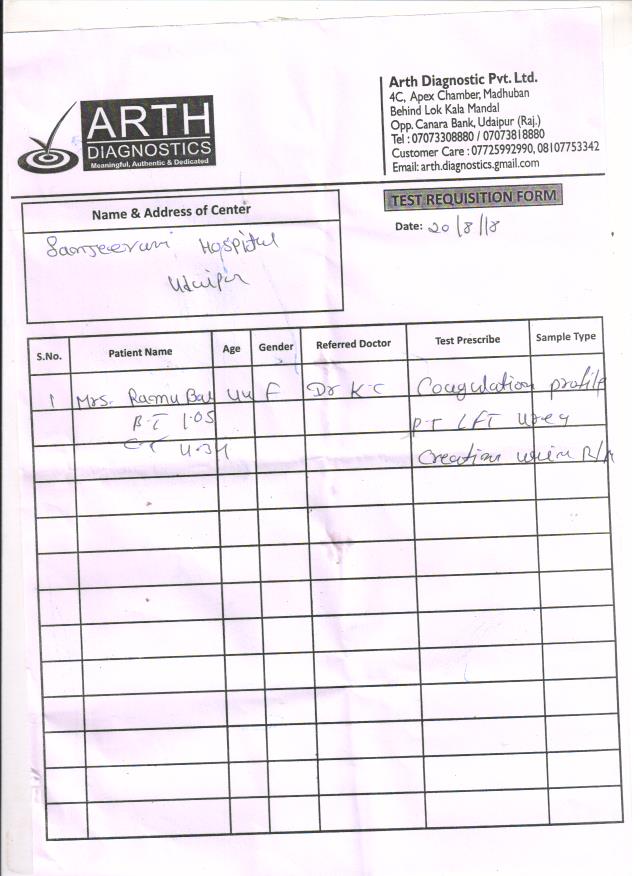 ARTH
DIAGNOSTICS
Meaningful, Authentic & Dedicated
Arth Diagnostic Pvt. Ltd.
4C, Apex Chamber, Madhuban
Behind Lok Kala Mandal
Opp. Canara Bank, Udaipur (Raj.)
Tel : 07073308880 / 07073818880
Customer Care : 07725992990, 08107753342
Email: arth.diagnostics.gmail.com
TEST REQUISITION FORM
Date: 20/8/18
Name & Address of Center
Sanjeevani Hospital
Udaipur
S.No. Patient Name Age Gender Referred Doctor Test Prescribe Sample Type
1 Mrs. Bai 44 F Dr K-C Coagulation profile
B-T 1.05 PT LFT Urea
CT Urine R/M